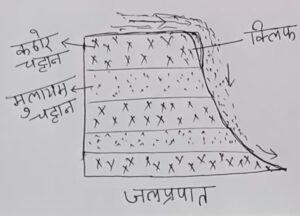 कठोर
चट्टान
क्लिफ
मुलायम
चट्टान
जलप्रपात